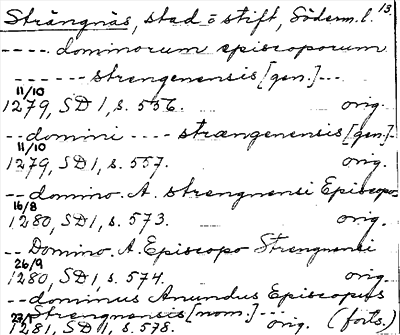 Strängnäs, stad o stift, Söderm. l. 13.
---- dominorum episcoporum
------ strengenensis [gen.] ---
11/10
1279, SD 1, s. 556. orig.
-- domini ---- strængenensis [gen.]
11/10
1279, SD 1, s. 557. orig.
-- domino. A. strengnensi Episcopo-
16/8
1280, SD 1, s. 573. orig.
-- Domino. A. Episcopo Strengnensi
26/9
1280, SD 1, s. 574. orig.
-- dominus Anundus Episcopus
Strengnensis [nom.] ---
1281, SD 1, s. 578. orig. (forts.)